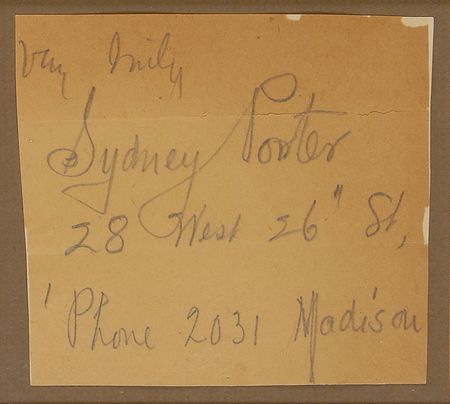 Very truly
Sydney Porter
28 West 26" St,
'Phone 2031 Madison